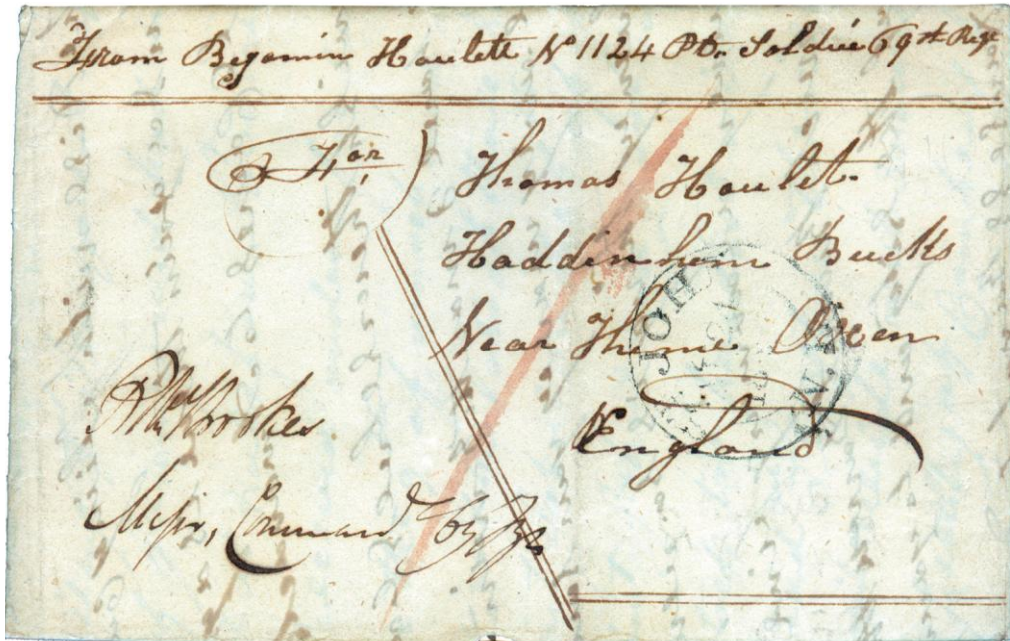 From Begamin Howlett No 1124 Pt. Soldier 69th Regt
For
Thomas Howlet
Haddinham Bucks
Near Thime Oxen
England
Brookes
Major, Command 69 Rgt
JOH
N.B